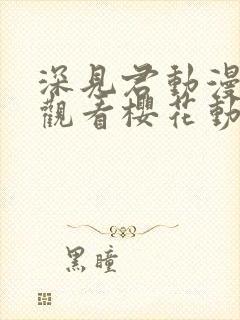 深見君動漫
觀看櫻花動
黑瞳